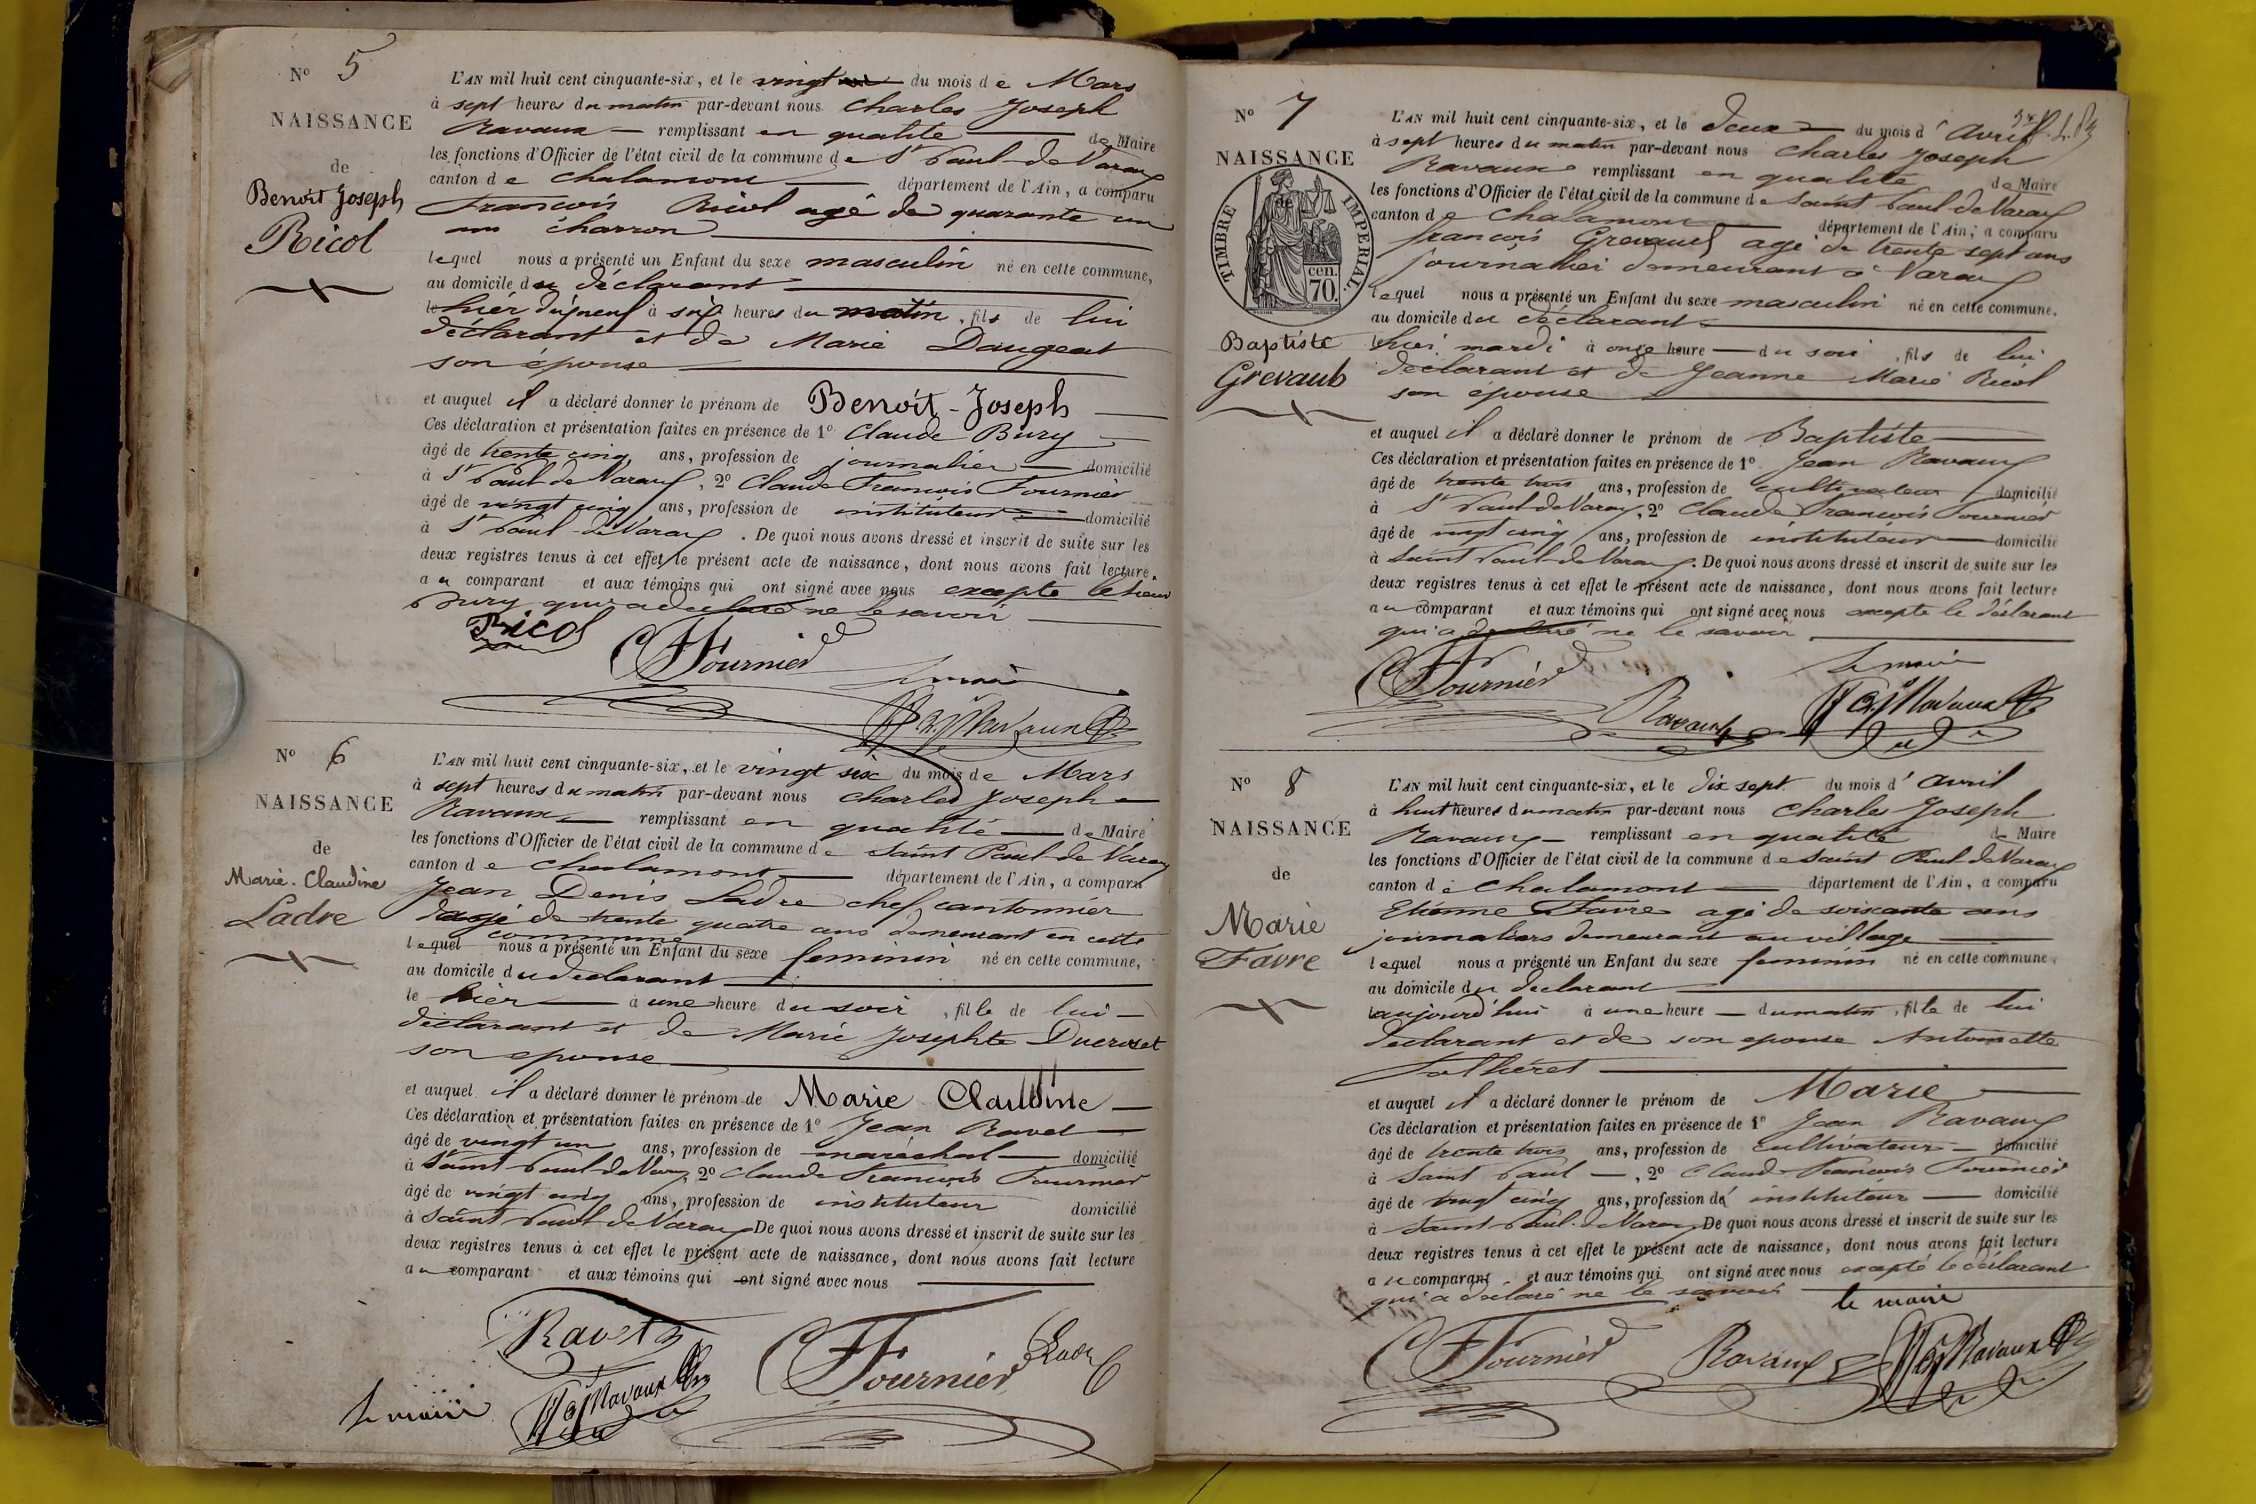 N° 5
NAISSANCE
de
Benoit Joseph
Ricol
L'AN mil huit cent cinquante-six, et le vingt du mois de Mars
à sept heures du matin par-devant nous Charles Joseph
Ravaux remplissant en qualité de Maire
les fonctions d'Officier de l'état civil de la commune de St Paul-de Varax
canton de Chalamont département de l'Ain, a comparu
François Ricol agé de quarante un
ans charron
lequel nous a présenté un Enfant du sexe masculin né en cette commune,
au domicile du déclarant
le hier dixneuf à six heures du matin, fils de lui
déclarant et de Marie Daugeat
son épouse
et auquel il a déclaré donner le prénom de Benoit-Joseph
Ces déclaration et présentation faites en présence de 1° Claude Bury
âgé de trente cinq ans, profession de journalier domicilié
à St Paul de Varax, 2° Claude François Fournier
âgé de vingt cinq ans, profession de instituteur domicilié
à St Paul-de Varax. De quoi nous avons dressé et inscrit de suite sur les
deux registres tenus à cet effet le présent acte de naissance, dont nous avons fait lecture
au comparant et aux témoins qui ont signé avec nous excepte le sieur
Bury qui a declaré ne le savoir
Ricol
CF Fournier
Le maire
Ravaux
N° 6
NAISSANCE
de
Marie-Claudine
Ladre
L'AN mil huit cent cinquante-six, et le vingt six du mois de Mars
à sept heures du matin par-devant nous Charles Joseph
Ravaux remplissant en qualité de Maire
les fonctions d'Officier de l'état civil de la commune de Saint Paul-de Varax
canton de Chalamont département de l'Ain, a comparu
Jean Denis Ladre chef cantonnier
agé de trente quatre ans demeurant en cette
commune
lequel nous a présenté un Enfant du sexe feminin né en cette commune,
au domicile du déclarant
le hier à une heure du soir, fille de lui
déclarant et de Marie Josephte Ducroset
son epouse
et auquel il a déclaré donner le prénom de Marie Claudine
Ces déclaration et présentation faites en présence de 1° Jean Ravet
âgé de vingt un ans, profession de maréchal domicilié
à Saint Paul de Varax, 2° Claude François Fournier
âgé de vingt cinq ans, profession de instituteur domicilié
à Saint Paul de Varax De quoi nous avons dressé et inscrit de suite sur les
deux registres tenus à cet effet le présent acte de naissance, dont nous avons fait lecture
au comparant et aux témoins qui ont signé avec nous
Ravet
CF Fournier
Ladre
Le maire
Ravaux
N° 7
NAISSANCE
de
TIMBRE IMPERIAL
cen.
70.
Baptiste
Grevaud
L'AN mil huit cent cinquante-six, et le deux du mois d'avril
à sept heures du matin par-devant nous Charles Joseph
Ravaux remplissant en qualité de Maire
les fonctions d'Officier de l'état civil de la commune de Saint Paul de Varax
canton de Chalamont département de l'Ain, a comparu
françois Grevaud agé de trente sept ans
journalier demeurant à Varax
lequel nous a présenté un Enfant du sexe masculin né en cette commune.
au domicile du déclarant
hier mardi à onze heure du soir, fils de lui
déclarant et de Jeanne Marie Ricol
son épouse
et auquel il a déclaré donner le prénom de Baptiste
Ces déclaration et présentation faites en présence de 1° Jean Ravaux
âgé de trente trois ans, profession de cultivateur domicilié
à St Paul de Varax, 2° Claude François Fournier
âgé de vingt cinq ans, profession de instituteur domicilié
à Saint Paul-de Varax. De quoi nous avons dressé et inscrit de suite sur les
deux registres tenus à cet effet le présent acte de naissance, dont nous avons fait lecture
au comparant et aux témoins qui ont signé avec nous excepte le déclarant
qui a declaré ne le savoir
CF Fournier
Ravaux
Le maire
Ravaux
N° 8
NAISSANCE
de
Marie
Favre
L'AN mil huit cent cinquante-six, et le dix sept du mois d'avril
à huit heures du matin par-devant nous Charles Joseph
Ravaux remplissant en qualité de Maire
les fonctions d'Officier de l'état civil de la commune de Saint Paul de Varax
canton de Chalamont département de l'Ain, a comparu
Etienne Favre agé de soixante ans
journaliers demeurant au village
lequel nous a présenté un Enfant du sexe feminin né en cette commune,
au domicile du declarant
aujourd'hui à une heure du matin, fille de lui
declarant et de son epouse Antoinette
et auquel il a déclaré donner le prénom de Marie
Ces déclaration et présentation faites en présence de 1° Jean Ravaux
âgé de trente trois ans, profession de cultivateur domicilié
à Saint Paul, 2° Claude François Fournier
âgé de vingt cinq ans, profession de instituteur domicilié
à Saint Paul-de Varax De quoi nous avons dressé et inscrit de suite sur les
deux registres tenus à cet effet le présent acte de naissance, dont nous avons fait lecture
au comparant et aux témoins qui ont signé avec nous excepté le déclarant
qui a déclaré ne le savoir
le maire
CF Fournier
Ravaux
Ravaux